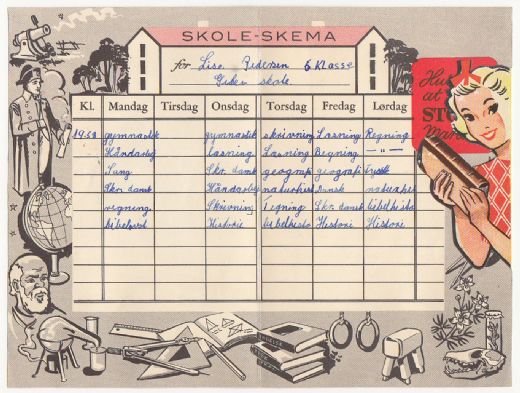 SKOLE-SKEMA
for Lise Pedersen 5 Klasse
skole.
Hus
at
STO
Kl. Mandag Tirsdag Onsdag Torsdag Fredag Lørdag
gymnastik gymnastik skrivning Læsning Regning
Håndarbej læsning Læsning Regning - " -
Sang Skr. dansk geografi geografi Fysik
Skr. dansk Håndarbej naturhis Dansk naturhis
regning Skrivning Tegning Skr. dansk bibelhisto
Historie bibelhisto Historie Historie